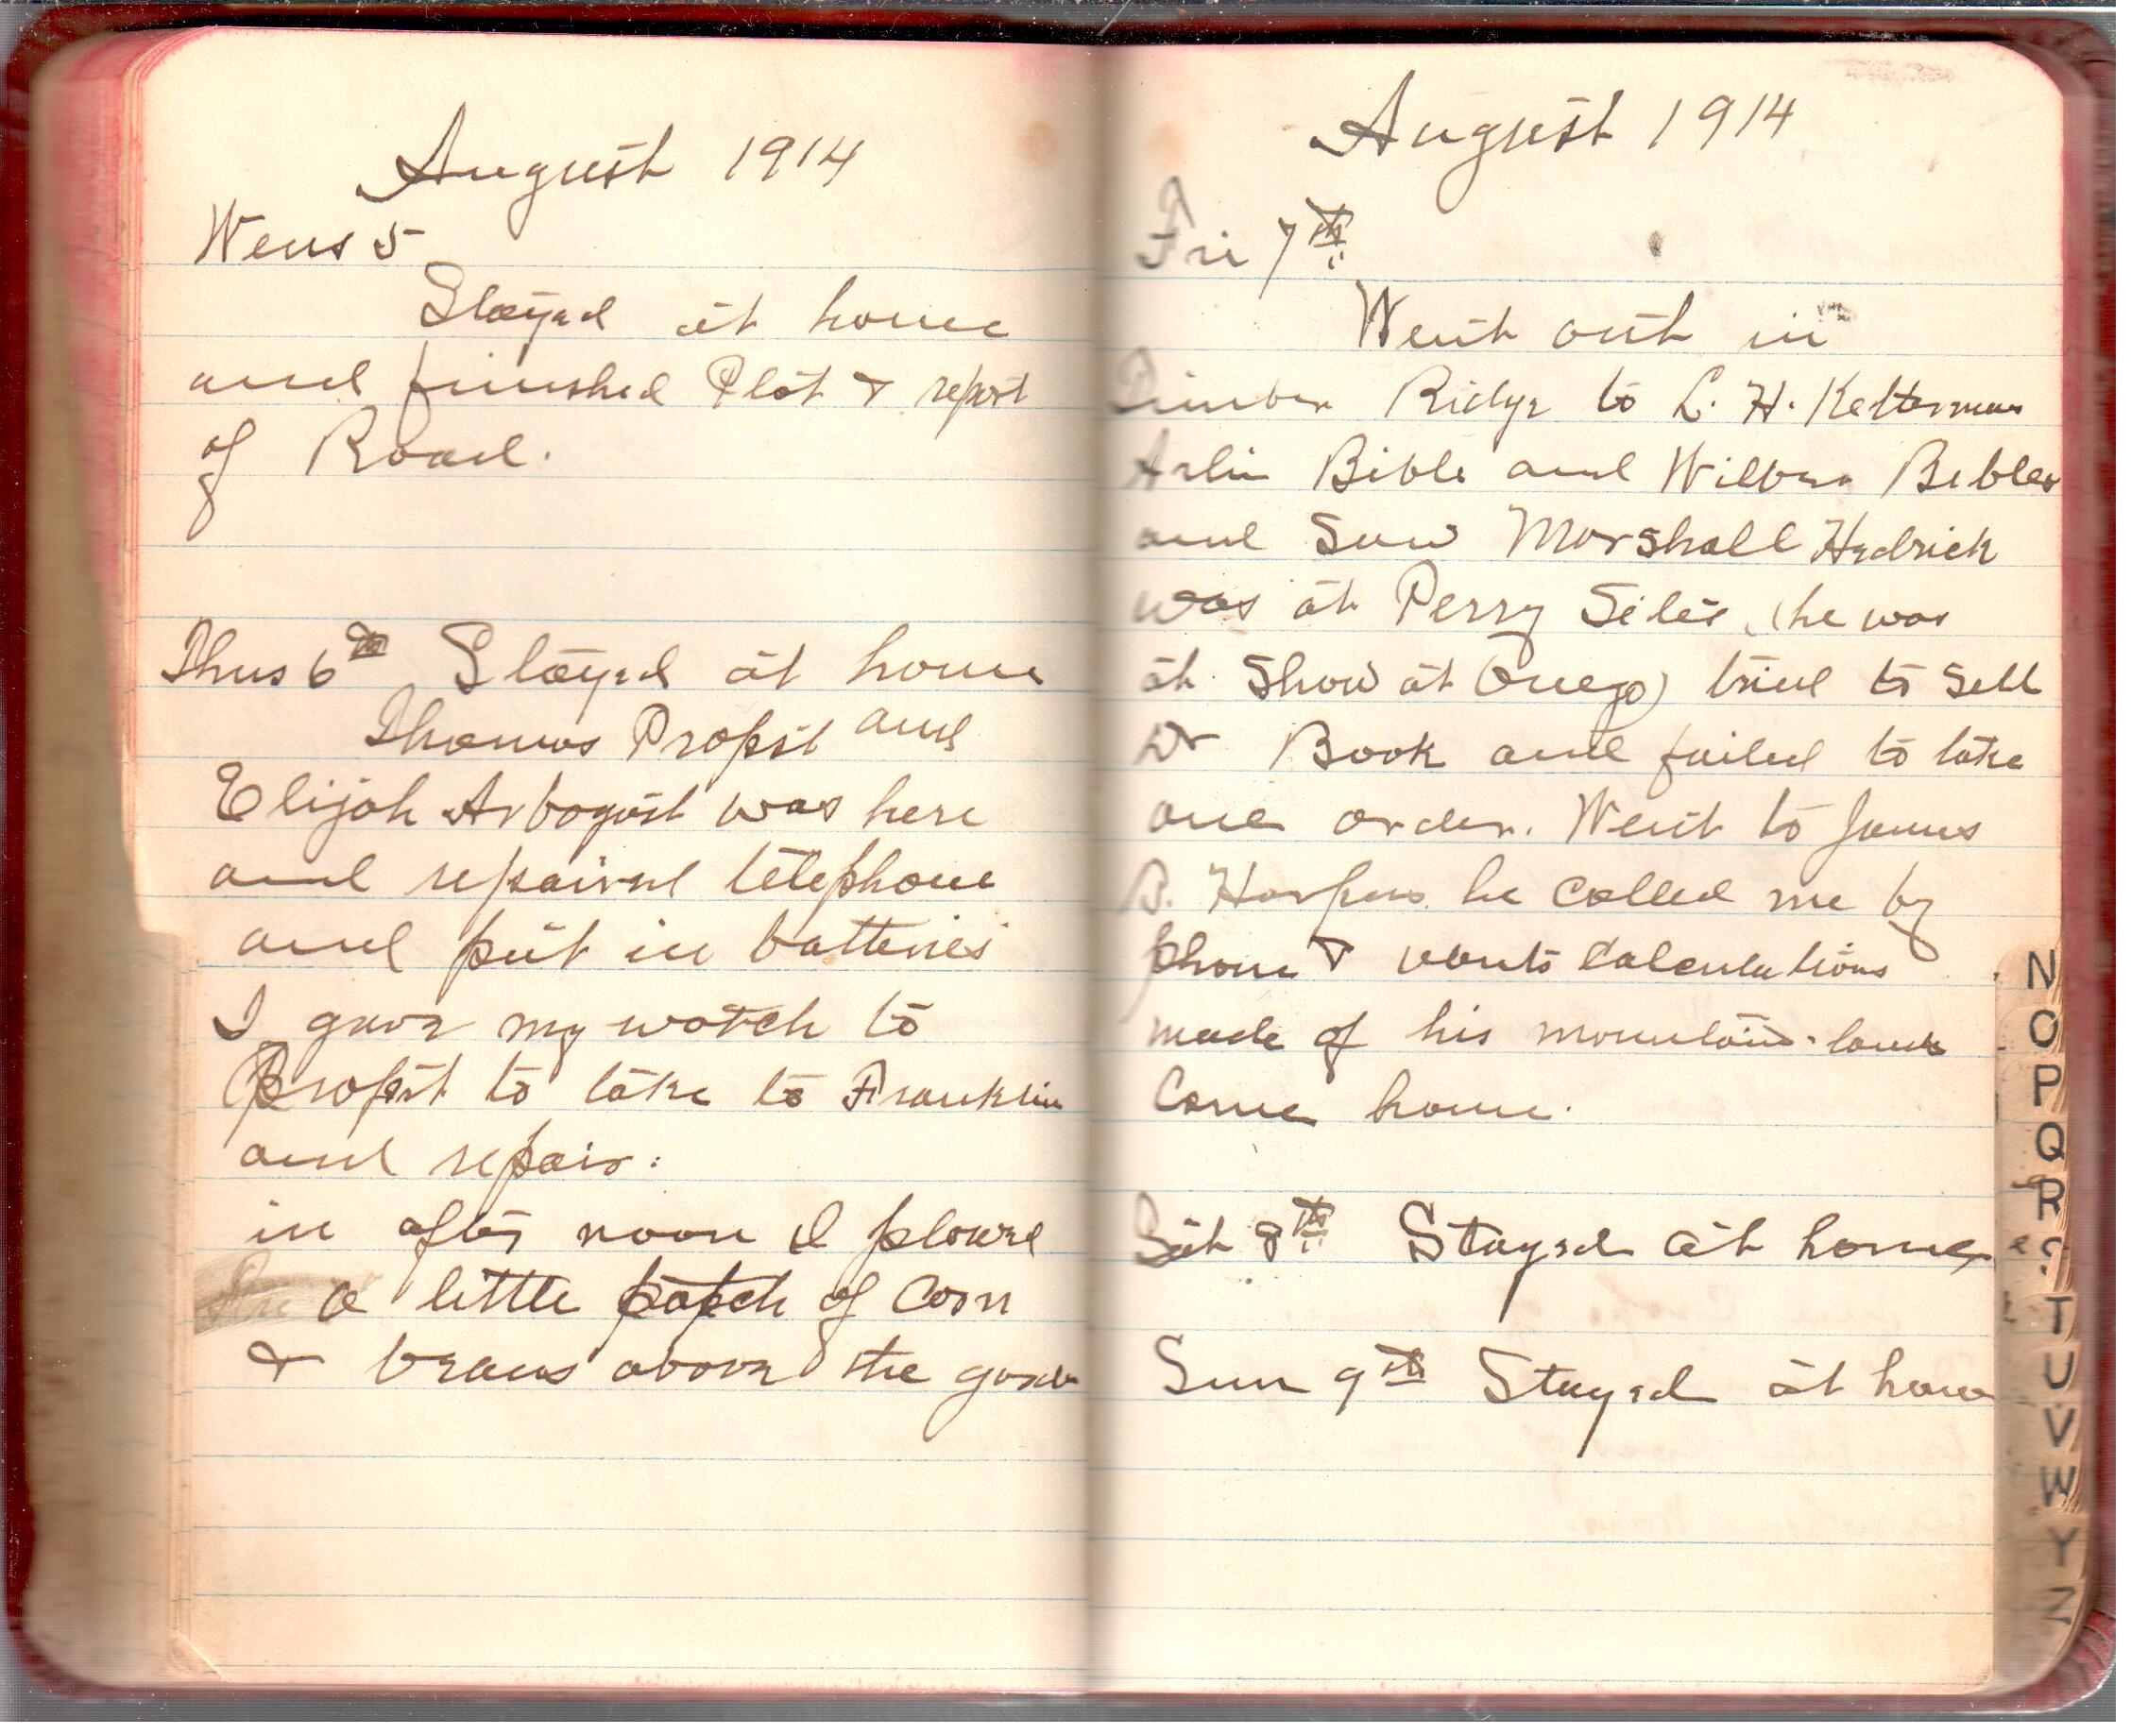 August 1914
Wens 5
Stayed at home
and finished Plat & report
of Road.
Thus 6th Stayed at home
Thomas Propst and
Elijah Arbogast was here
and repaired telephone
and put in batteries
I gave my watch to
Propst to take to Franklin
and repair.
in after noon I plowed
a little patch of Corn
& beans above the garden
August 1914
Fri 7th
Went out in
Timber Ridge to L. H. Ketterman
Arlin Bible and Wilber Bibles
and Saw Marshall Hedrick
was at Perry Sites, (he was
at Show at Onego) tried to Sell
Dr Book and failed to take
one order. Went to James
B. Harpers he Called me by
phone & wants Calculations
made of his mountain land
Came home.
Sat 8th Stayed at home
Sun 9th Stayed at home
N
O
P
Q
R
S
T
U
V
W
Y
Z